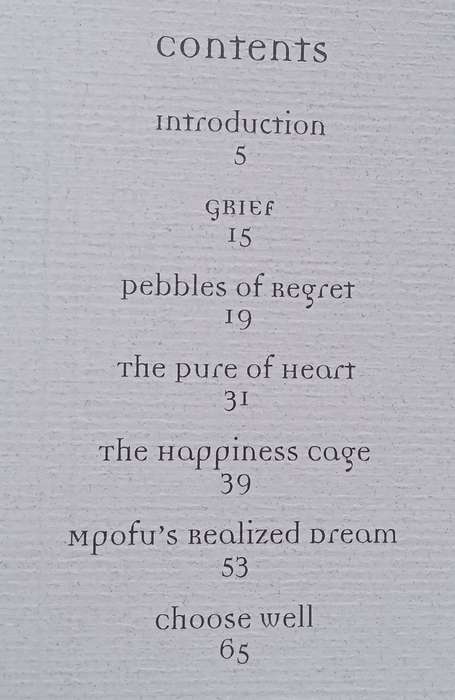 contents
Introduction
5
GRIEF
15
Pebbles of Regret
19
The Pure of Heart
31
The Happiness Cage
39
Mpofu's Realized Dream
53
Choose Well
65